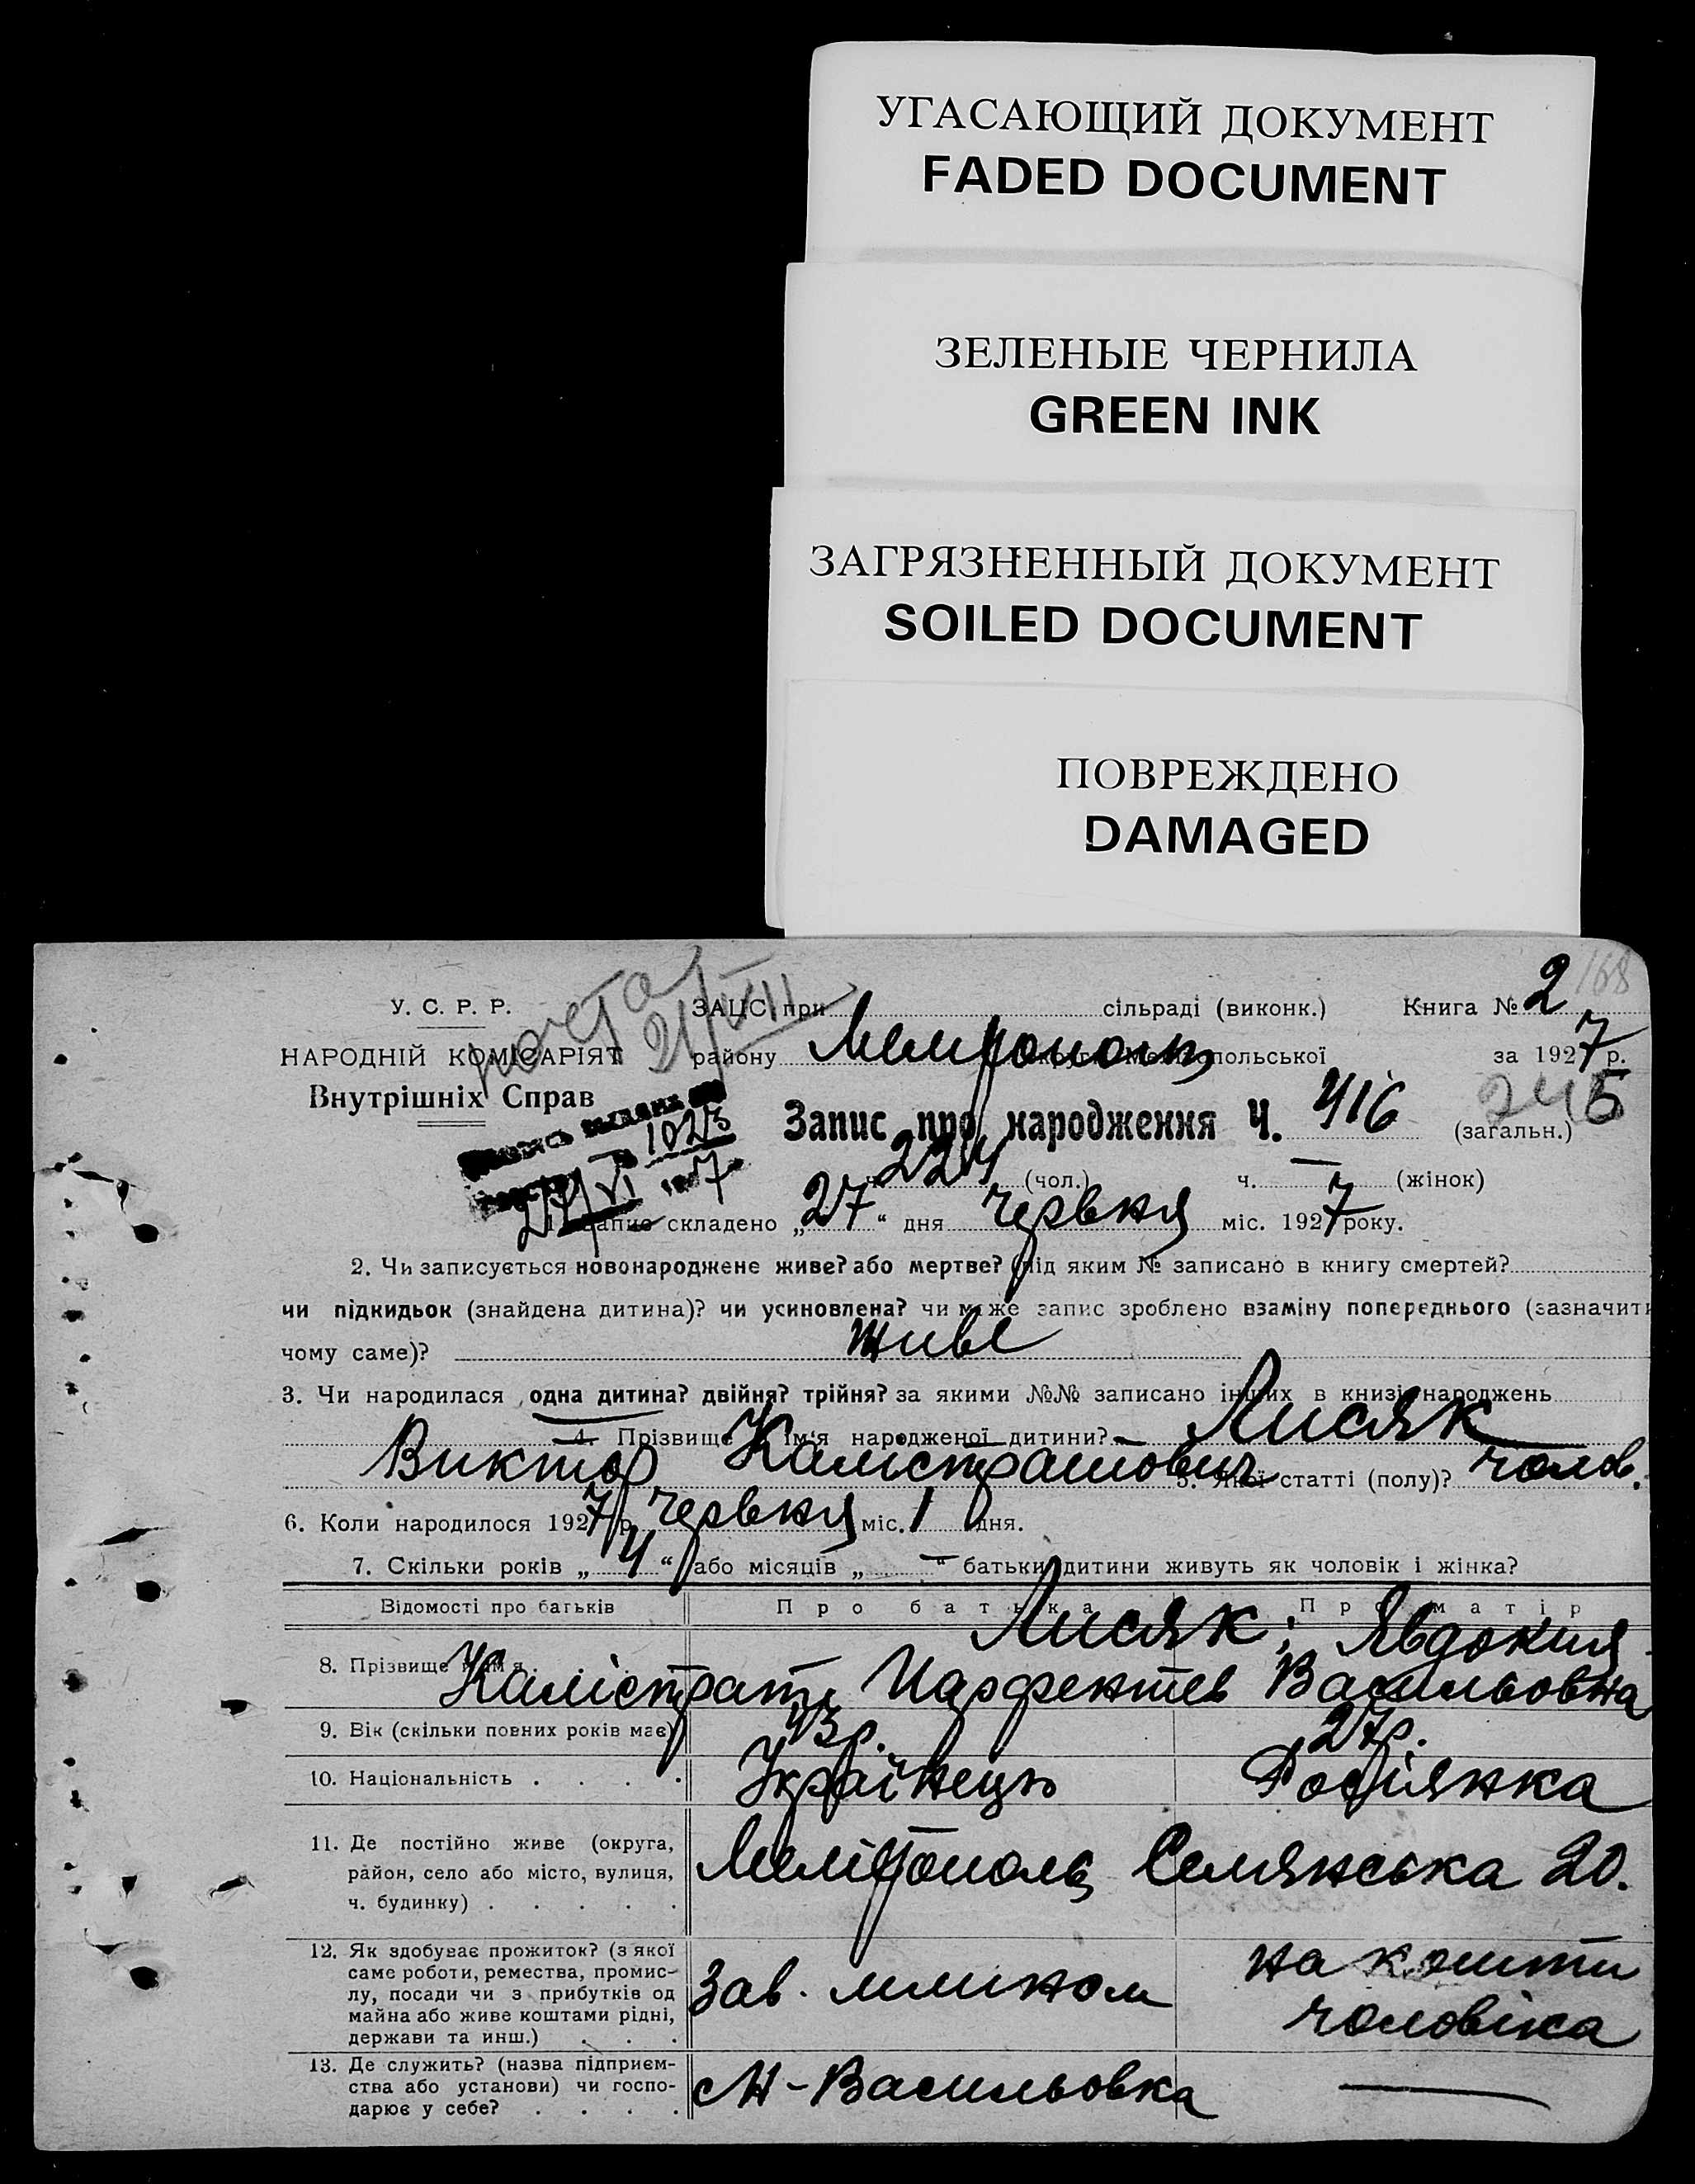 УГАСАЮЩИЙ ДОКУМЕНТ
FADED DOCUMENT
ЗЕЛЕНЫЕ ЧЕРНИЛА
GREEN INK
ЗАГРЯЗНЕННЫЙ ДОКУМЕНТ
SOILED DOCUMENT
ПОВРЕЖДЕНО
DAMAGED
У. С. Р. Р. ЗАЦС при сільраді (виконк.) Книга № 2 168
НАРОДНІЙ КОМІСАРІЯТ району за 1927 р.
Внутрішніх Справ
Запис про народження Ч. 416 245 (загальн.)
ч. 224 (чол.) ч. — (жінок)
1. Запис складено „27“ дня червня міс. 1927 року.
2. Чи записується новонароджене живе? або мертве? (під яким № записано в книгу смертей?
чи підкидьок (знайдена дитина)? чи усиновлена? чи може запис зроблено взаміну попереднього (зазначити
чому саме)? живе
3. Чи народилася одна дитина? двійня? трійня? за якими №№ записано інших в книзі народжень
4. Прізвище ім'я народженої дитини? Лисяк
Виктор Калістратович 5. Якої статті (полу)? чолов.
6. Коли народилося 1927 р. червня міс. 1 дня.
7. Скільки років „4“ або місяців „—“ батьки дитини живуть як чоловік і жінка?
Відомості про батьків Про батька Про матір
Лисяк; Явдокия
8. Прізвище Калістрат Васильовна
9. Вік (скільки повних років має) 43р. 27р.
10. Національність . . . . . Українець Росіянка
11. Де постійно живе (округа,
район, село або місто, вулиця,
ч. будинку) . . . . . Мелітополь Селянська 20.
12. Як здобуває прожиток? (з якої
саме роботи, ремества, промис-
лу, посади чи з прибутків од
майна або живе коштами рідні,
держави та инш.) . . . Зав. млином на кошти
чоловіка
13. Де служить? (назва підприєм-
ства або установи) чи госпо-
дарює у себе? . . . . Н-Васильовка —